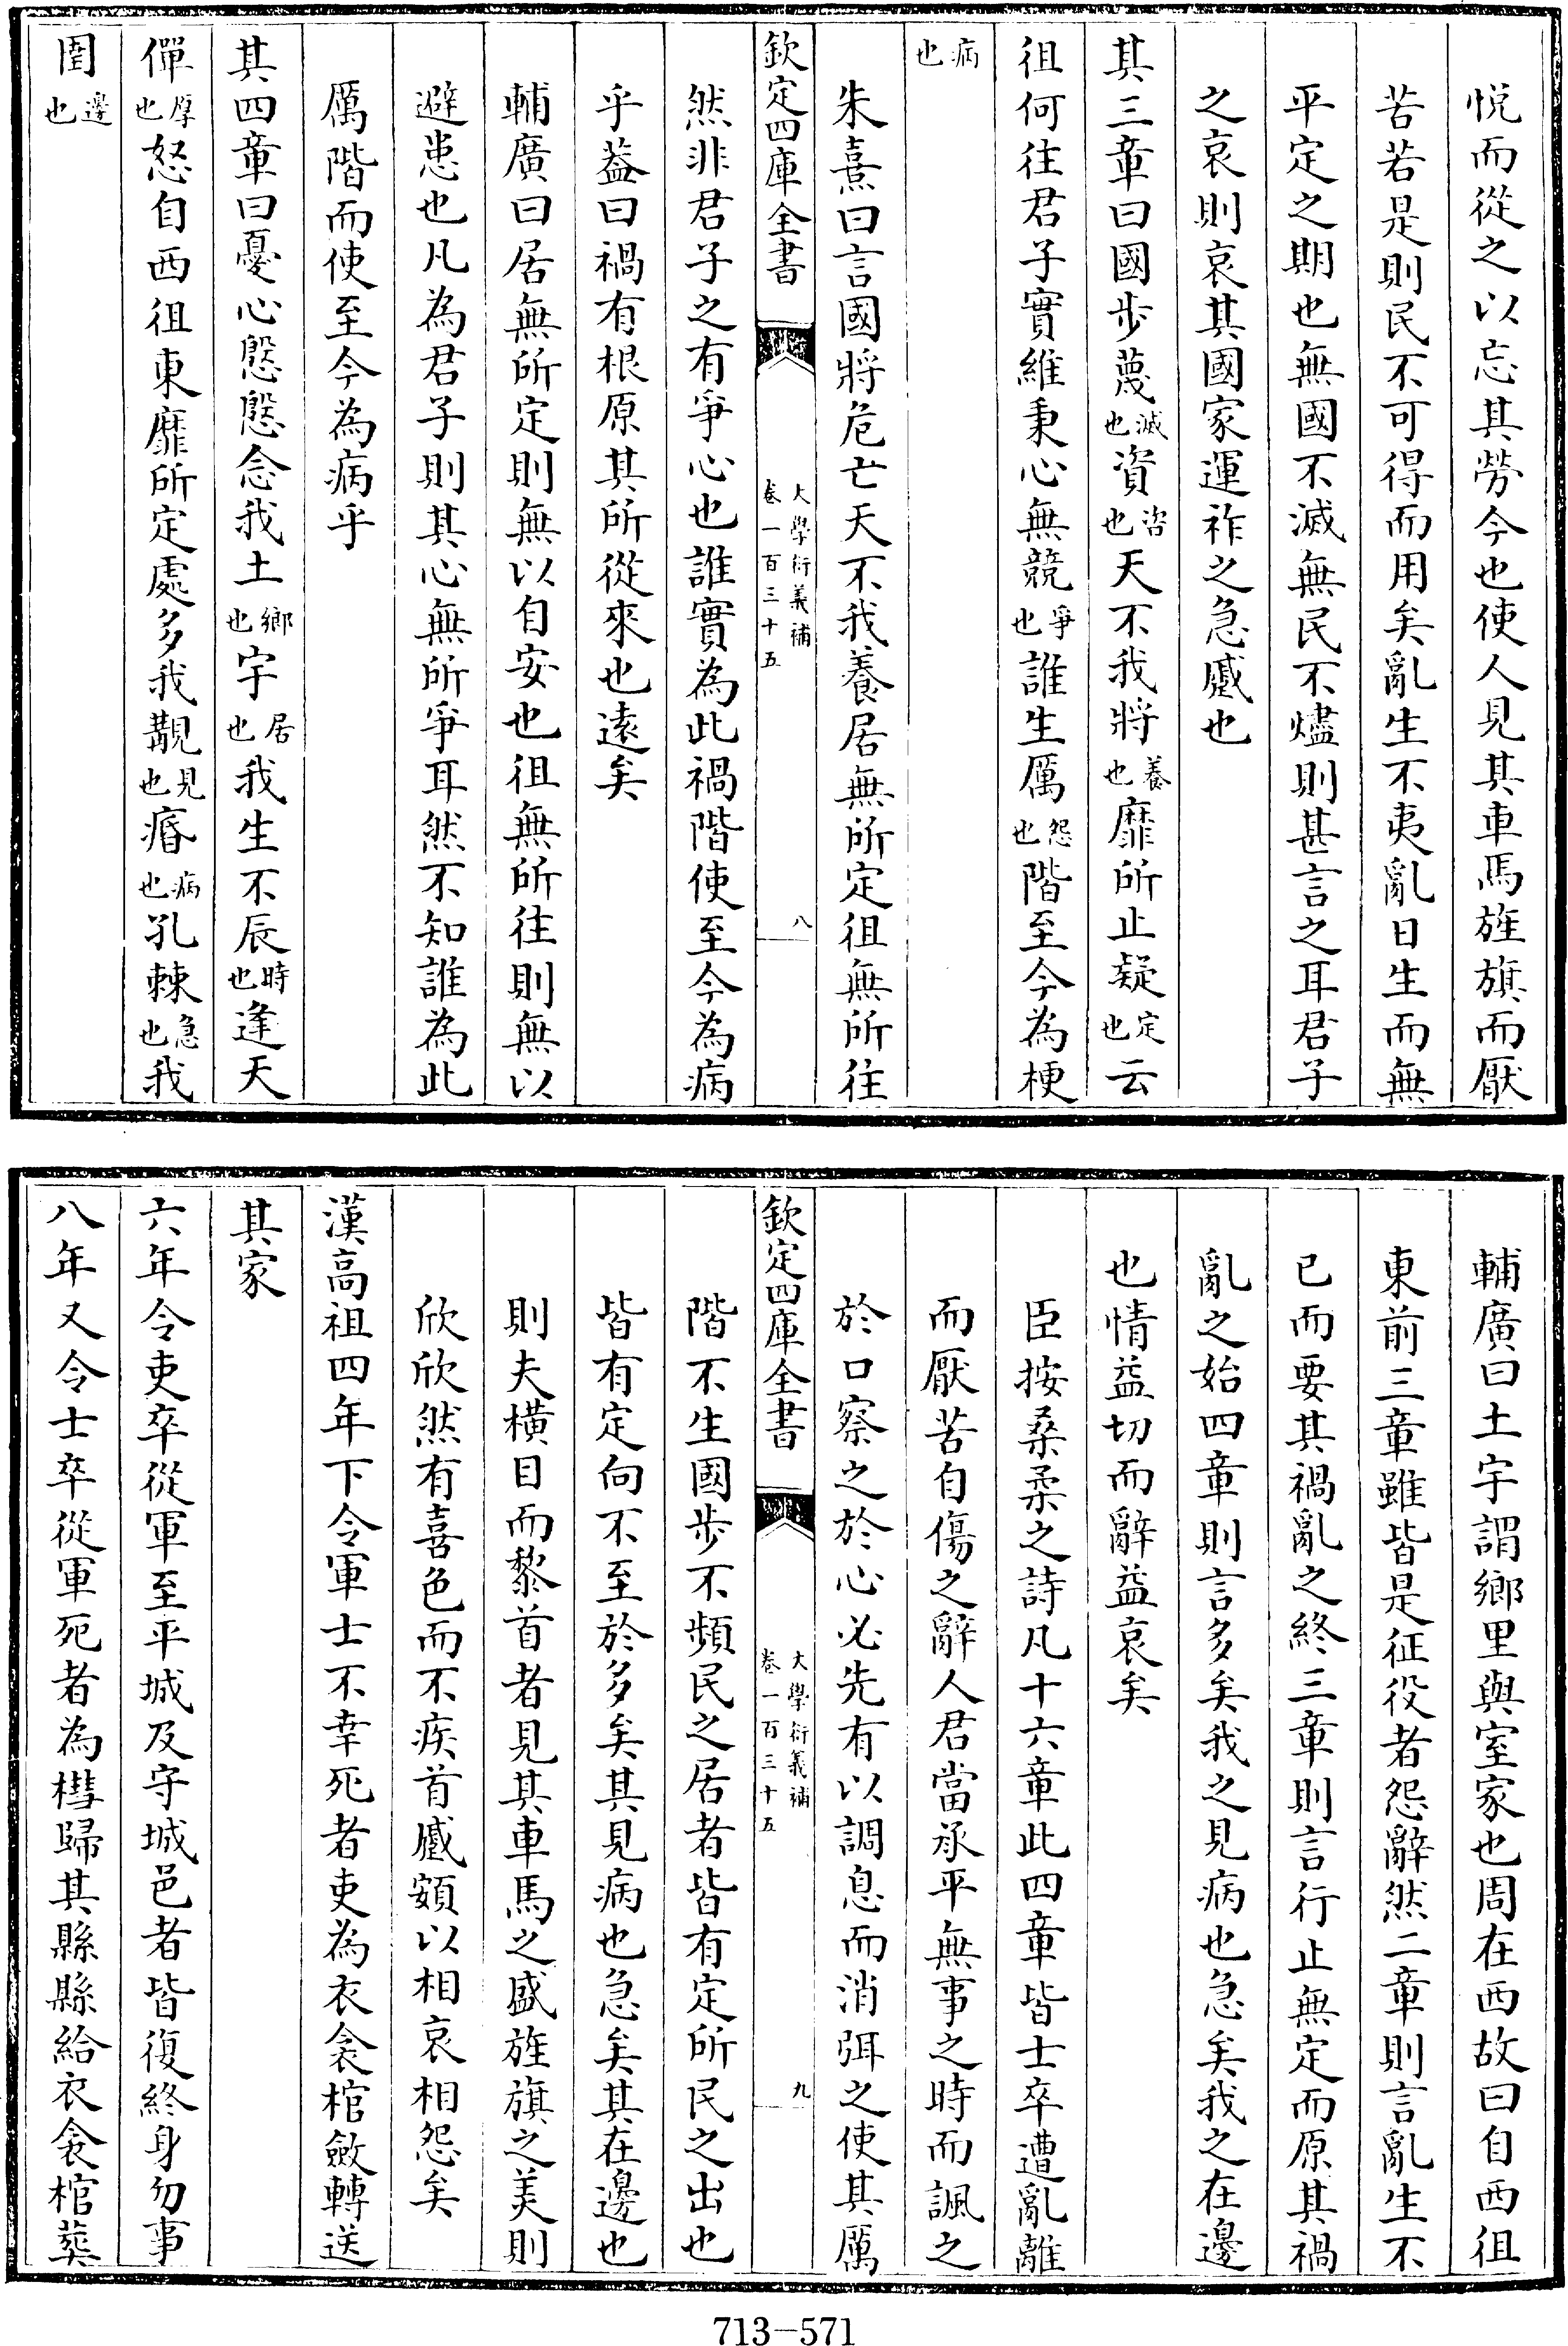 悦而從之以忘其勞今也使人見其車馬旌旗而厭
苦若是則民不可得而用矣亂生不夷亂日生而無
平定之期也無國不滅無民不燼則甚言之耳君子
之哀則哀其國家運祚之急蹙也
其三章曰國步蔑滅也資咨也天不我將養也靡所止疑定也云
徂何往君子實維秉心無競爭也誰生厲怨也階至今為梗
病也
朱熹曰言國將危亡天不我養居無所定徂無所往
欽定四庫全書
大學衍義補
卷一百三十五
八
然非君子之有爭心也誰實為此禍階使至今為病
乎葢曰禍有根原其所從來也遠矣
輔廣曰居無所定則無以自安也徂無所往則無以
避患也凡為君子則其心無所爭耳然不知誰為此
厲階而使至今為病乎
其四章曰憂心慇慇念我土鄉也宇居也我生不辰時也逢天
僤厚也怒自西徂東靡所定處多我覯見也痻病也孔棘急也我
圉邊也
輔廣曰土宇謂鄉里與室家也周在西故曰自西徂
東前三章雖皆是征役者怨辭然二章則言亂生不
已而要其禍亂之終三章則言行止無定而原其禍
亂之始四章則言多矣我之見病也急矣我之在邊
也情益切而辭益哀矣
臣按桑柔之詩凡十六章此四章皆士卒遭亂離
而厭苦自傷之辭人君當承平無事之時而諷之
於口察之於心必先有以調息而消弭之使其厲
欽定四庫全書
大學衍義補
卷一百三十五
九
階不生國步不頻民之居者皆有定所民之出也
皆有定向不至於多矣其見病也急矣其在邊也
則夫橫目而黎首者見其車馬之盛旌旗之美則
欣欣然有喜色而不疾首蹙頞以相哀相怨矣
漢高祖四年下令軍士不幸死者吏為衣衾棺斂轉送
其家
六年令吏卒從軍至平城及守城邑者皆復終身勿事
八年又令士卒從軍死者為槥歸其縣縣給衣衾棺葬
713-571